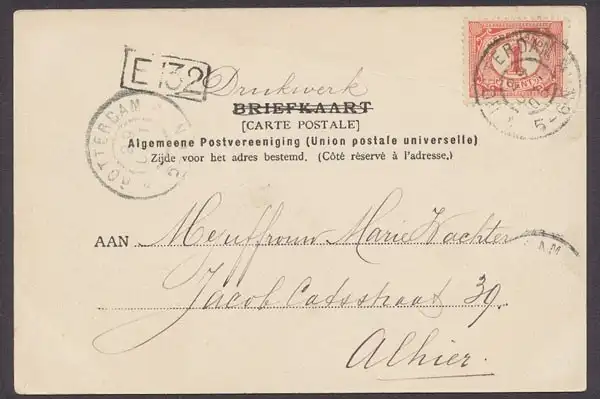 E 132
Drukwerk
BRIEFKAART
[CARTE POSTALE]
Algemeene Postvereeniging (Union postale universelle)
Zijde voor het adres bestemd. (Côté réservé à l'adresse.)
ROTTERDAM
1
CENT
AAN Mejuffrouw Marie Wachter
Jacob Catsstraat 39.
Alhier.